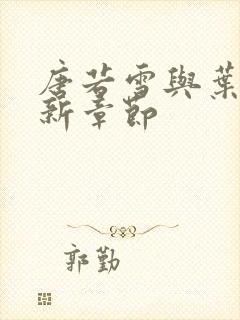 唐若雪與葉
新章節
郭勤